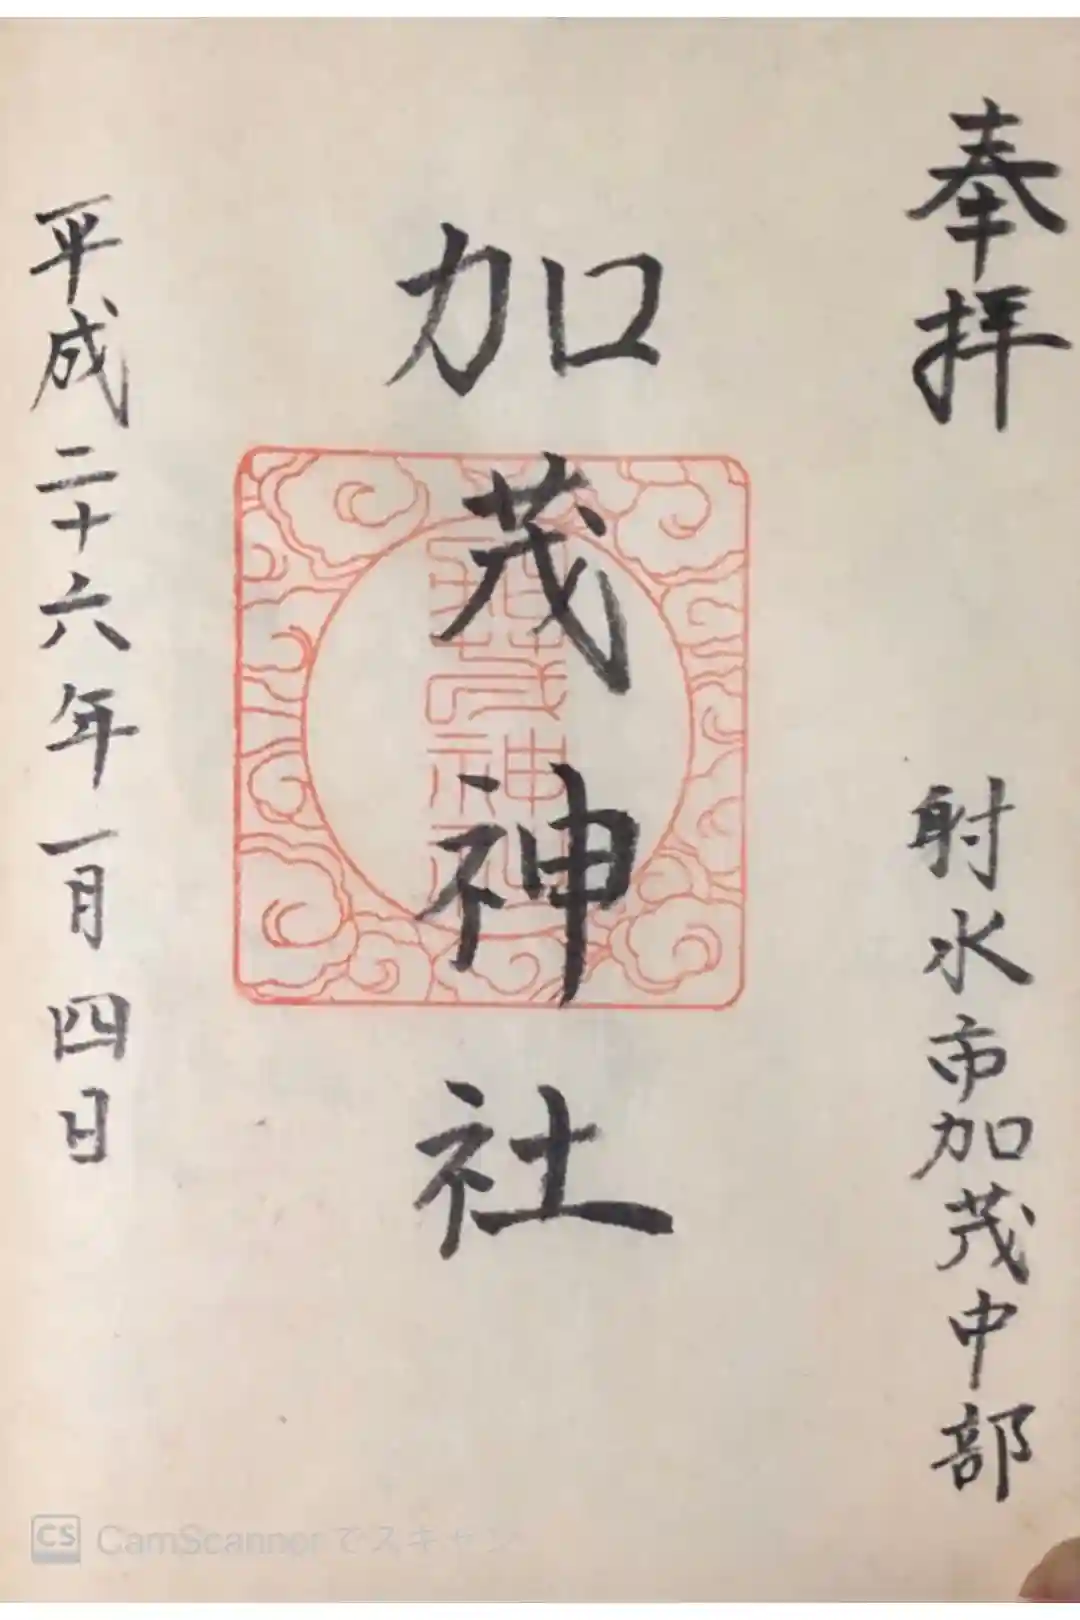 奉拝
射水市加茂中部
加茂神社
平成二十六年一月四日
CS CamScannerでスキャン